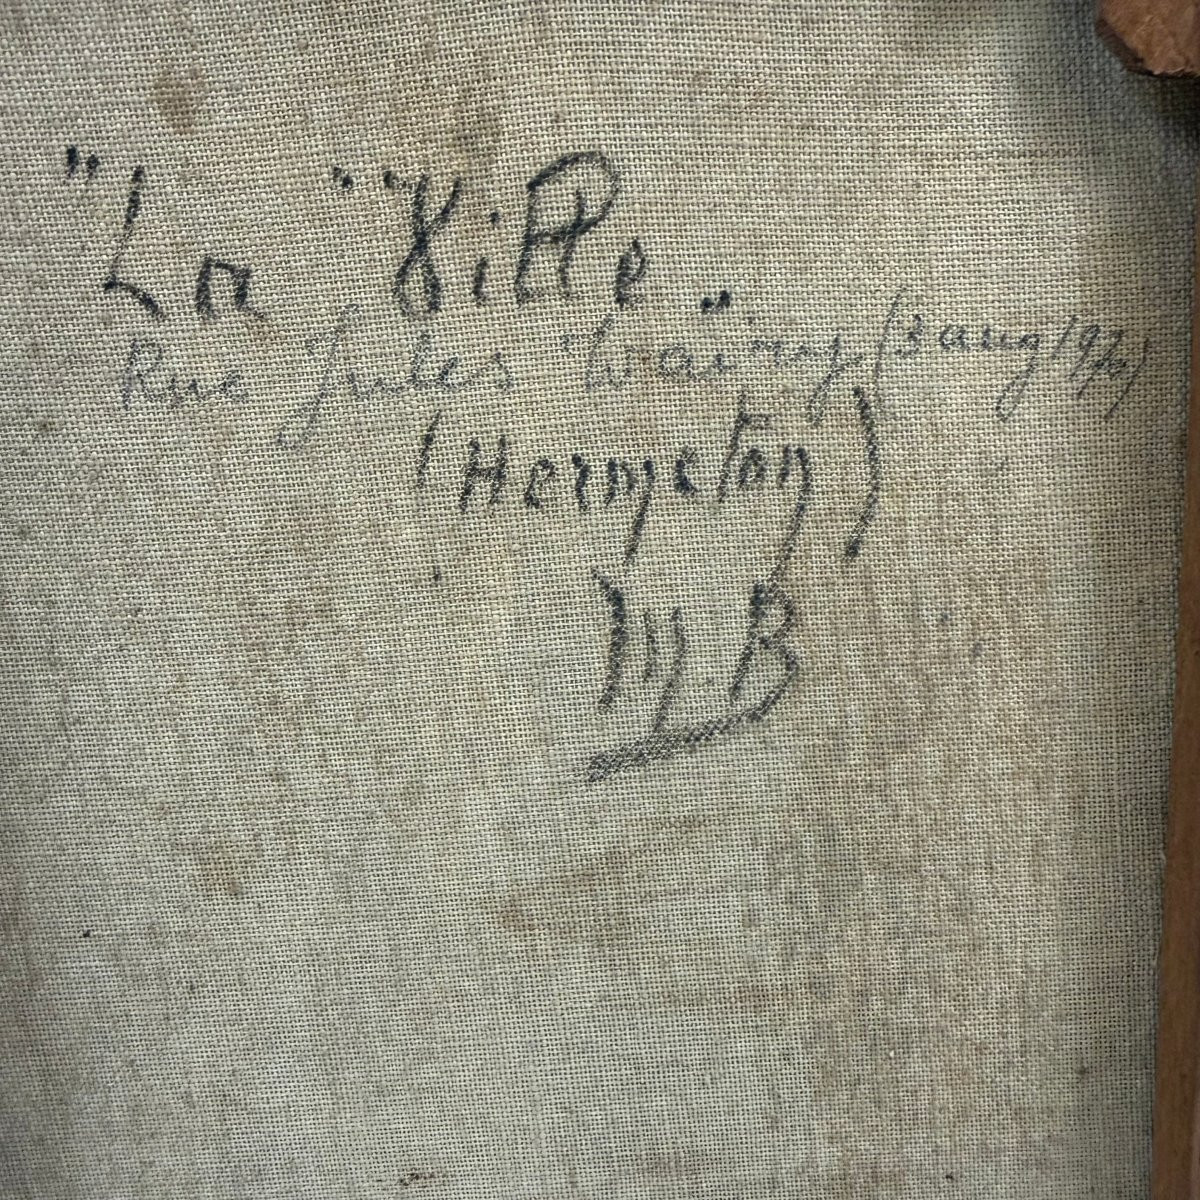 "La "Ville".
Rue Jules (3 aug
(Hermeton)
M.B